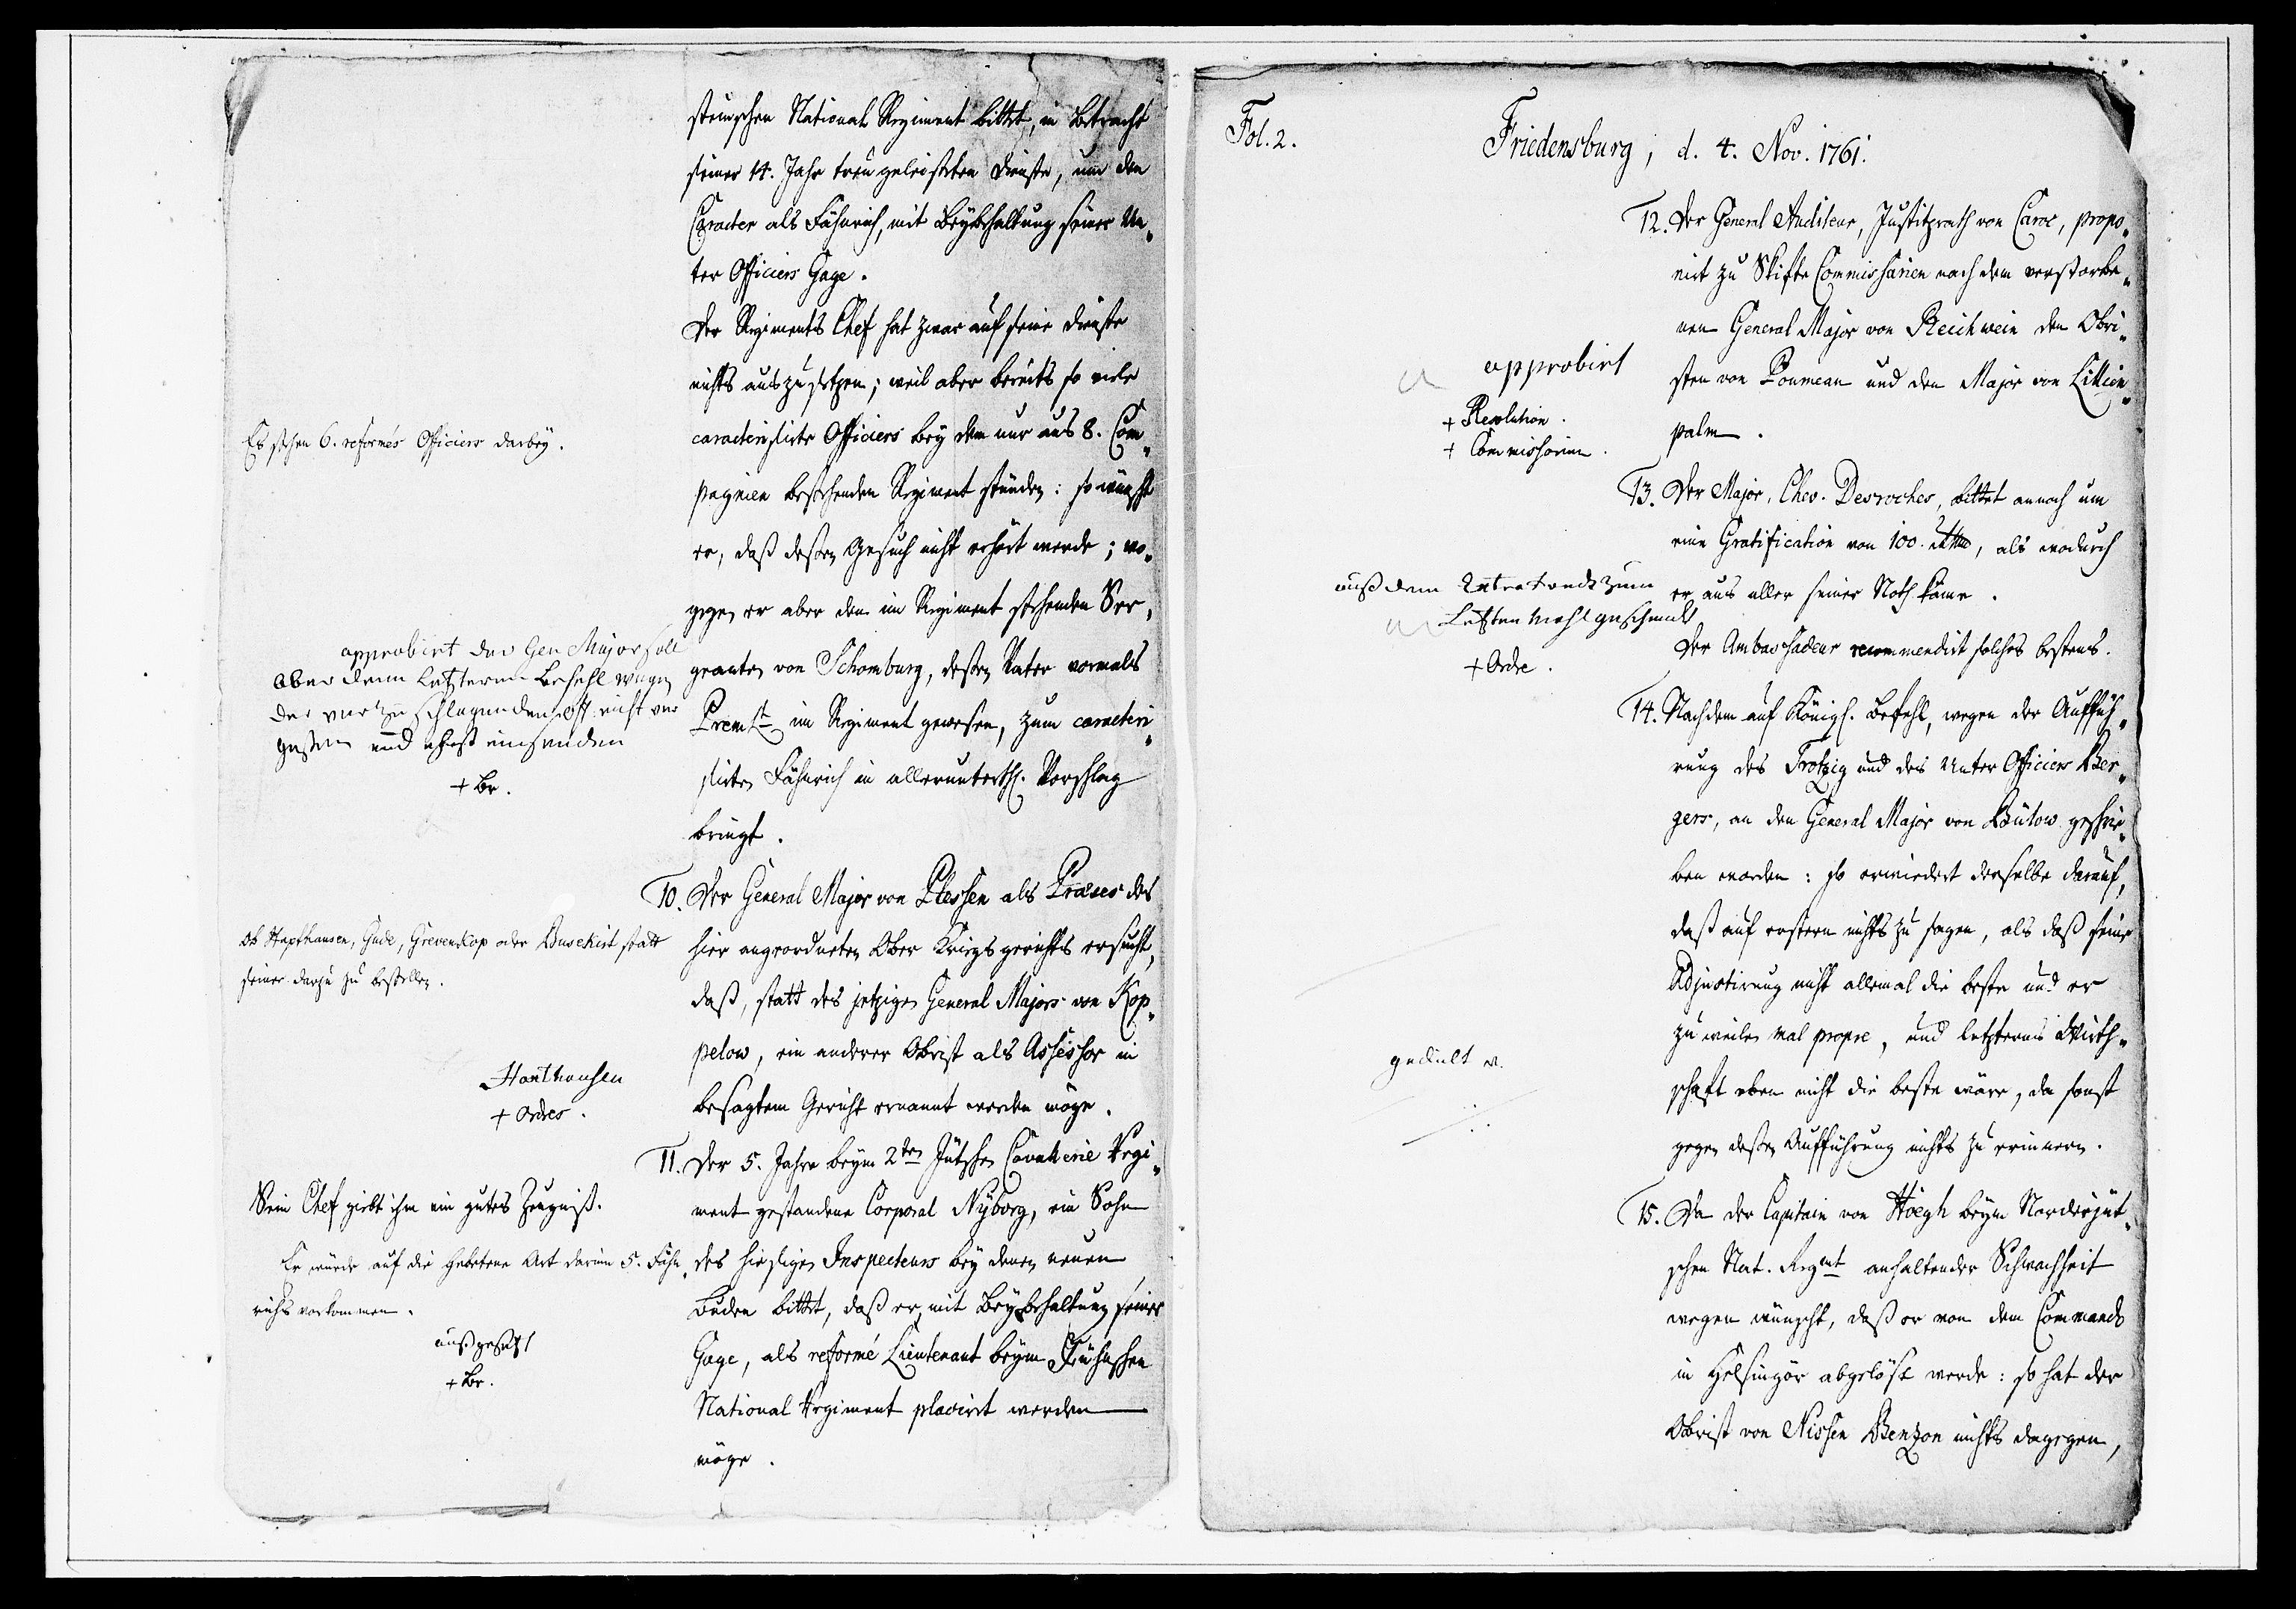 steinschen National Regiment bittet, in Betracht
seiner 14. Jahr treu geleisteten Dienste, um den
Caracter als Fähnrich, mit Beybehaltung seiner Un„
ter Officiers Gage.
Der Regiments Chef hat zwar auf seine Dienste
nichts auszusetzen; weil aber bereits so viele
caracterisirte Officiers bey dem nur aus 8. Com„
pagnien bestehenden Regiment stünden: so wünscht
er, daß deßen Gesuch nicht erhört werde; wo„
gegen er aber den im Regiment stehenden Ser„
geanten von Schomburg, deßen Vater vormals
Prem Lt im Regiment gewesen, zum caracteri„
sirten Fähnrich in allerunterth. Vorschlag
bringt.
Es stehen 6. reformés Officiers darbey.
approbirt der Gen Major soll
aber dem letzteren Befehl wegen
der vorzuschlagenden Off. nicht ver
geßen und ehest einsenden
+ Br.
10. Der General Major von Plessen als Præses des
hier angeordneten Ober Kriegsgerichts ersucht,
daß, statt des jetzigen General Majors von Kop„
pelow, ein anderer Obrist als Assessor in
besagtem Gericht ernannt werden möge.
Ob Haxthausen, Gude, Grevenkop oder Busekist statt
seiner darzu zu bestellen.
Haxthausen
+ Ordres.
11. Der 5. Jahre beym 2ten Jütschen Cavallerie Regi„
ment gestandene Corporal Nyborg, ein Sohn
des hiesigen Inspecteurs bey denen neuen
Buden bittet, daß er, mit Beybehaltung seiner
Gage, als reformé Lieutenant beym Fühnschen
National Regiment placirt werden
möge.
Sein Chef giebt ihm ein gutes Zeugniß.
Er würde auf die gebetene Art darinn 5. Fähn„
richs vorkommen.
außgesetzt
+ Br.
Fol. 2.
Friedensburg, d. 4. Nov. 1761.
12. Der General Auditeur, Justitzrath von Caroc, propo„
nirt zu Skifte Commissarien nach dem verstorbe„
nen General Major von Reichwein den Obri„
sten von Poumeau und den Major von Lillien„
palm.
approbirt
+ Resolution.
+ Commissorium.
13. Der Major, Chev. Desroches, bittet annoch um
eine Gratification von 100. Rthlr, als wodurch
er aus aller seiner Noth käme.
Der Ambassadeur recommendirt solches bestens.
auß dem Extra fonds zum
Letzten mahl geschenckt
+ Ordre.
14. Nachdem auf Königl. Befehl, wegen der Auffüh„
rung des Trotzig und des Unter Officiers Ber„
gers, an den General Major von Bülow geschrie„
ben worden: so erwiedert derselbe darauf,
daß auf erstern nichts zu sagen, als daß seine
Adjustirung nicht allemal die beste und er
zuweilen mal propre, und letzterns Wirth„
schaft eben nicht die beste wäre, da sonst
gegen deßen Aufführung nichts zu erinnern.
gedult
15. Da der Capitain von Höegh beym Norderjüt„
schen Nat. Regmt anhaltender Schwachheit
wegen wünscht, daß er von dem Commando
in Helsingör abgelöst werde: so hat der
Obrist von Nissen Benzon nichts dagegen,